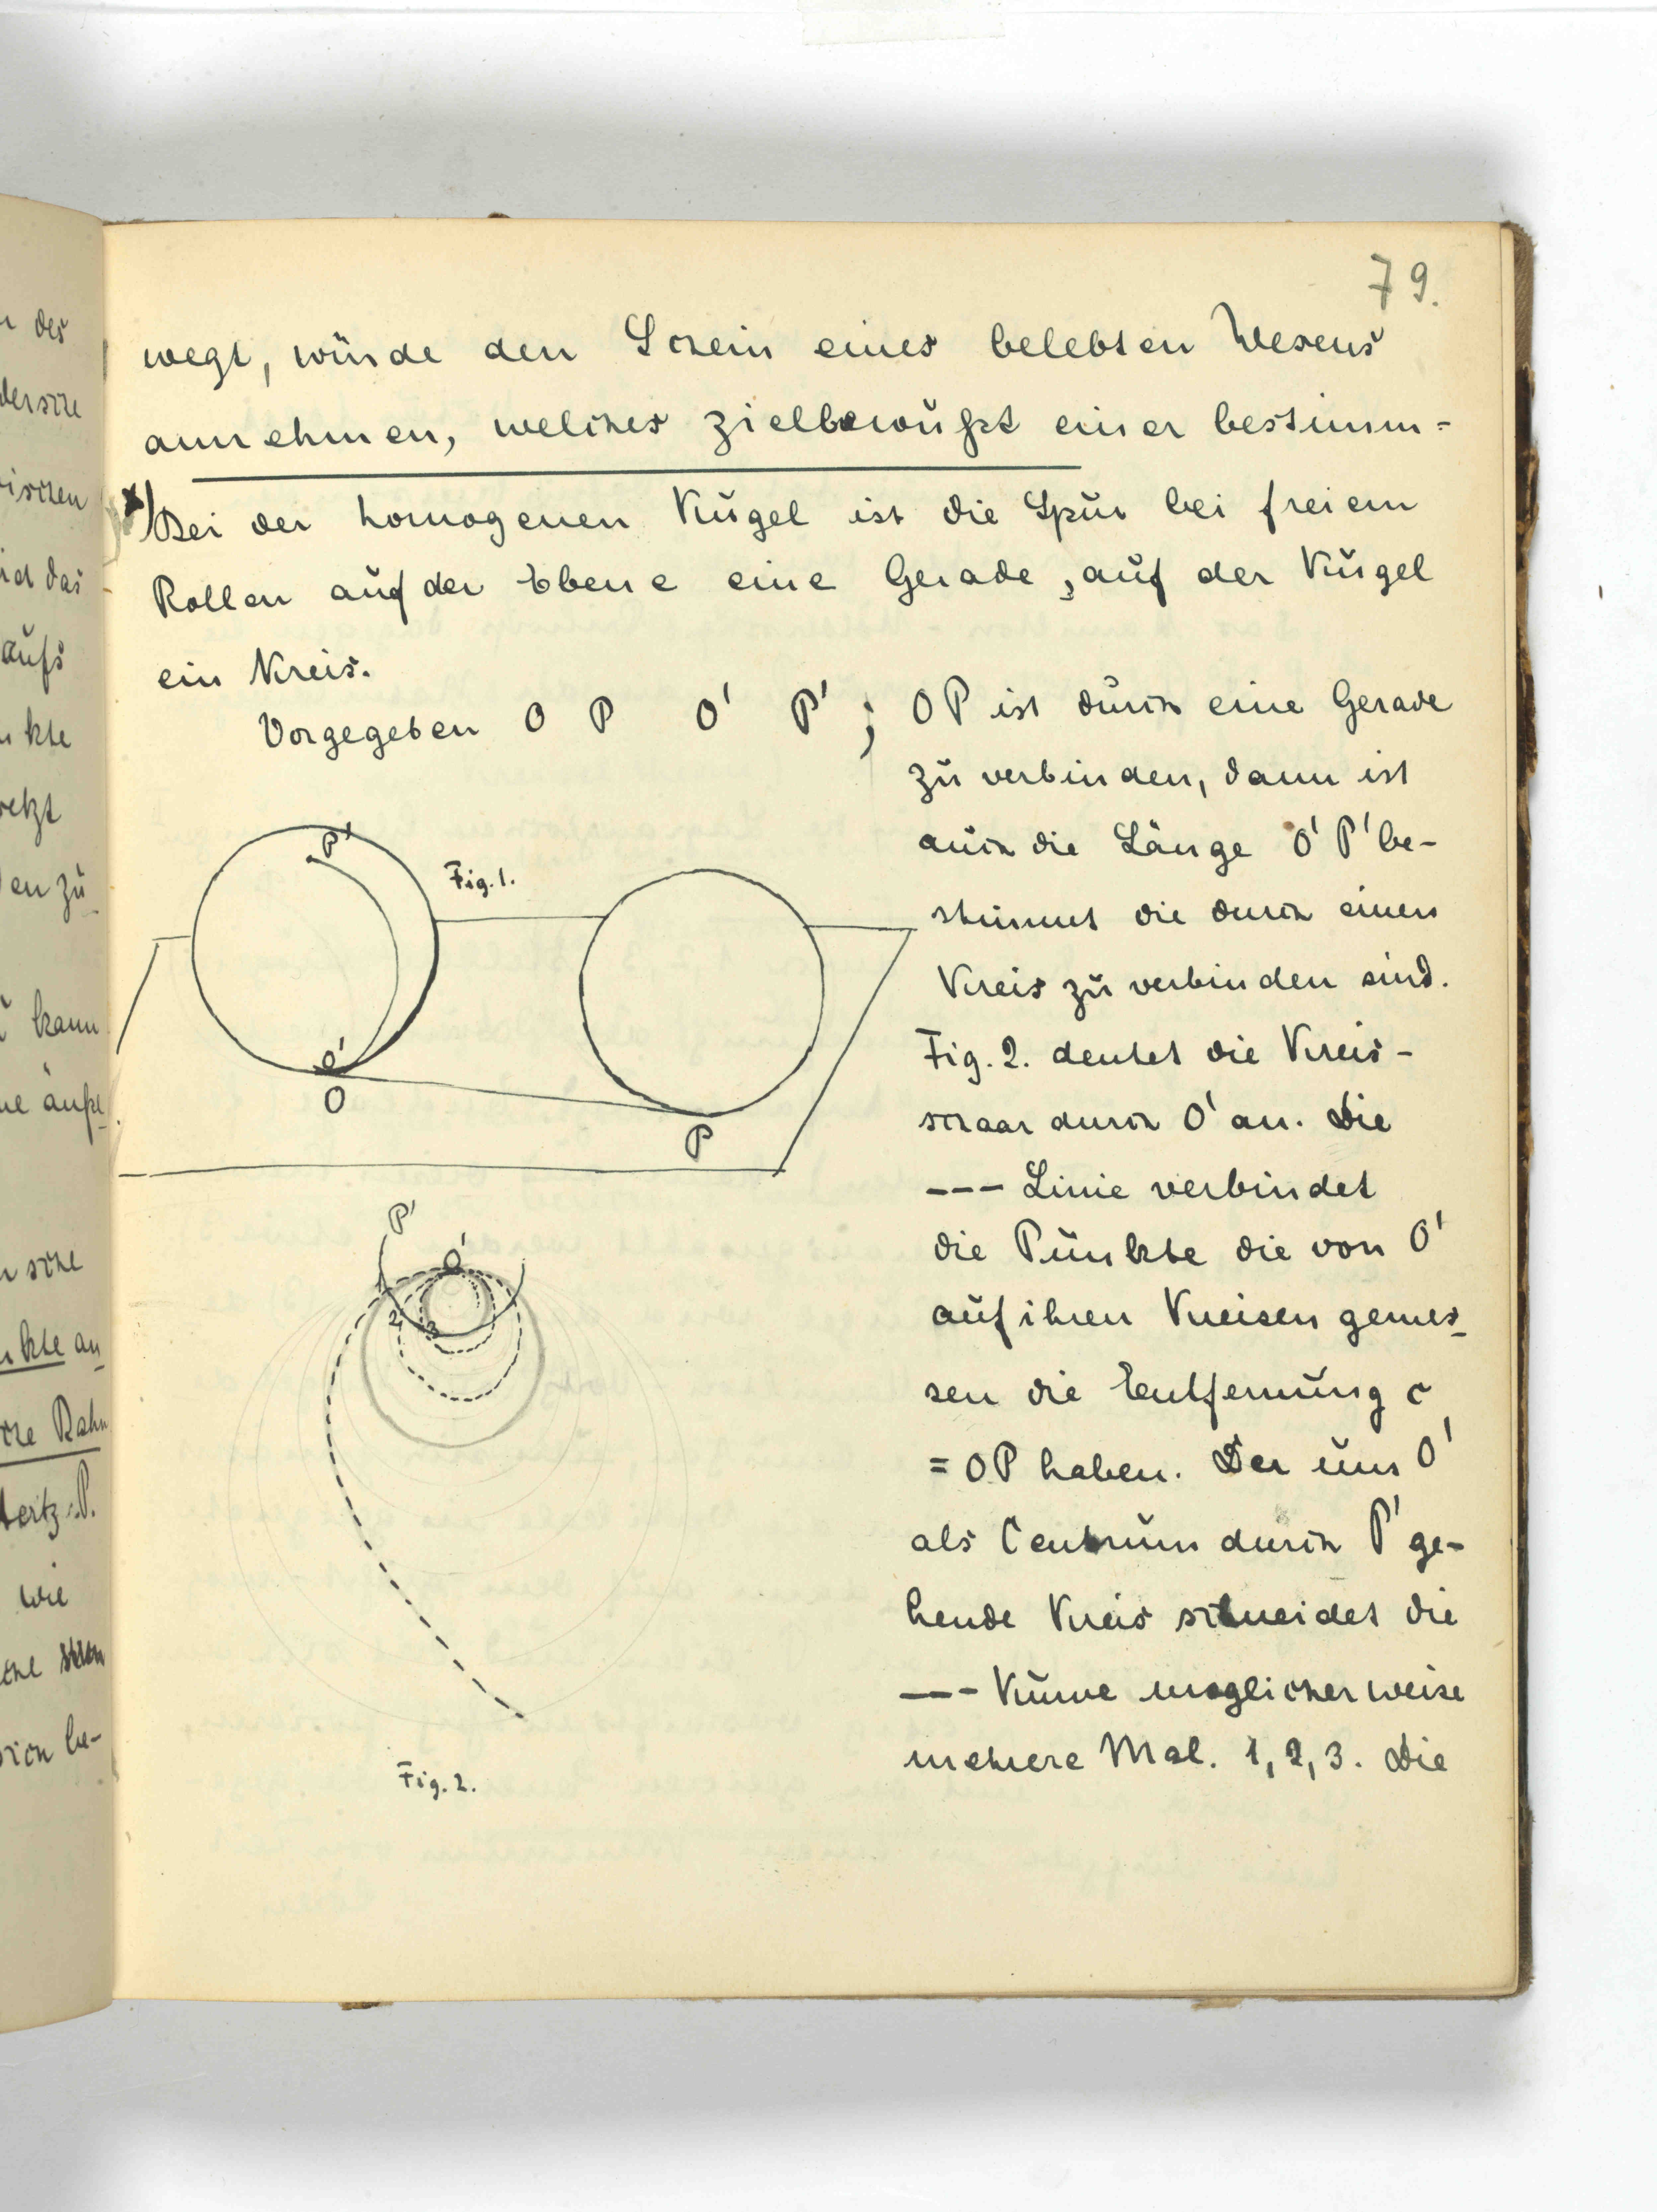 79.
wegt, würde den Schein eines belebten Wesens
annehmen, welches zielbewußt einer bestimm=
x) Bei der homogenen Kugel ist die Spur bei freiem
Rollen auf der Ebene eine Gerade, auf der Kugel
ein Kreis.
Vorgegeben O P O' P'; OP ist durch eine Gerade
zu verbinden, dann ist
auch die Länge O'P' be-
stimmt die durch einen
Kreis zu verbinden sind.
Fig. 2. deutet die Kreis-
schaar durch O' an. Die
--- Linie verbindet
die Punkte die von O'
auf ihren Kreisen gemes-
sen die Entfernung c
= OP haben. Der um O'
als Centrum durch P' ge-
hende Kreis schneidet die
--- Kurve möglicherweise
mehrere Mal. 1, 2, 3. Die
P'
Fig. 1.
O'
O
P
P'
O'
2
3
Fig. 2.
des
kte
zu
kann
kte an
Bahn
Hertz
wie